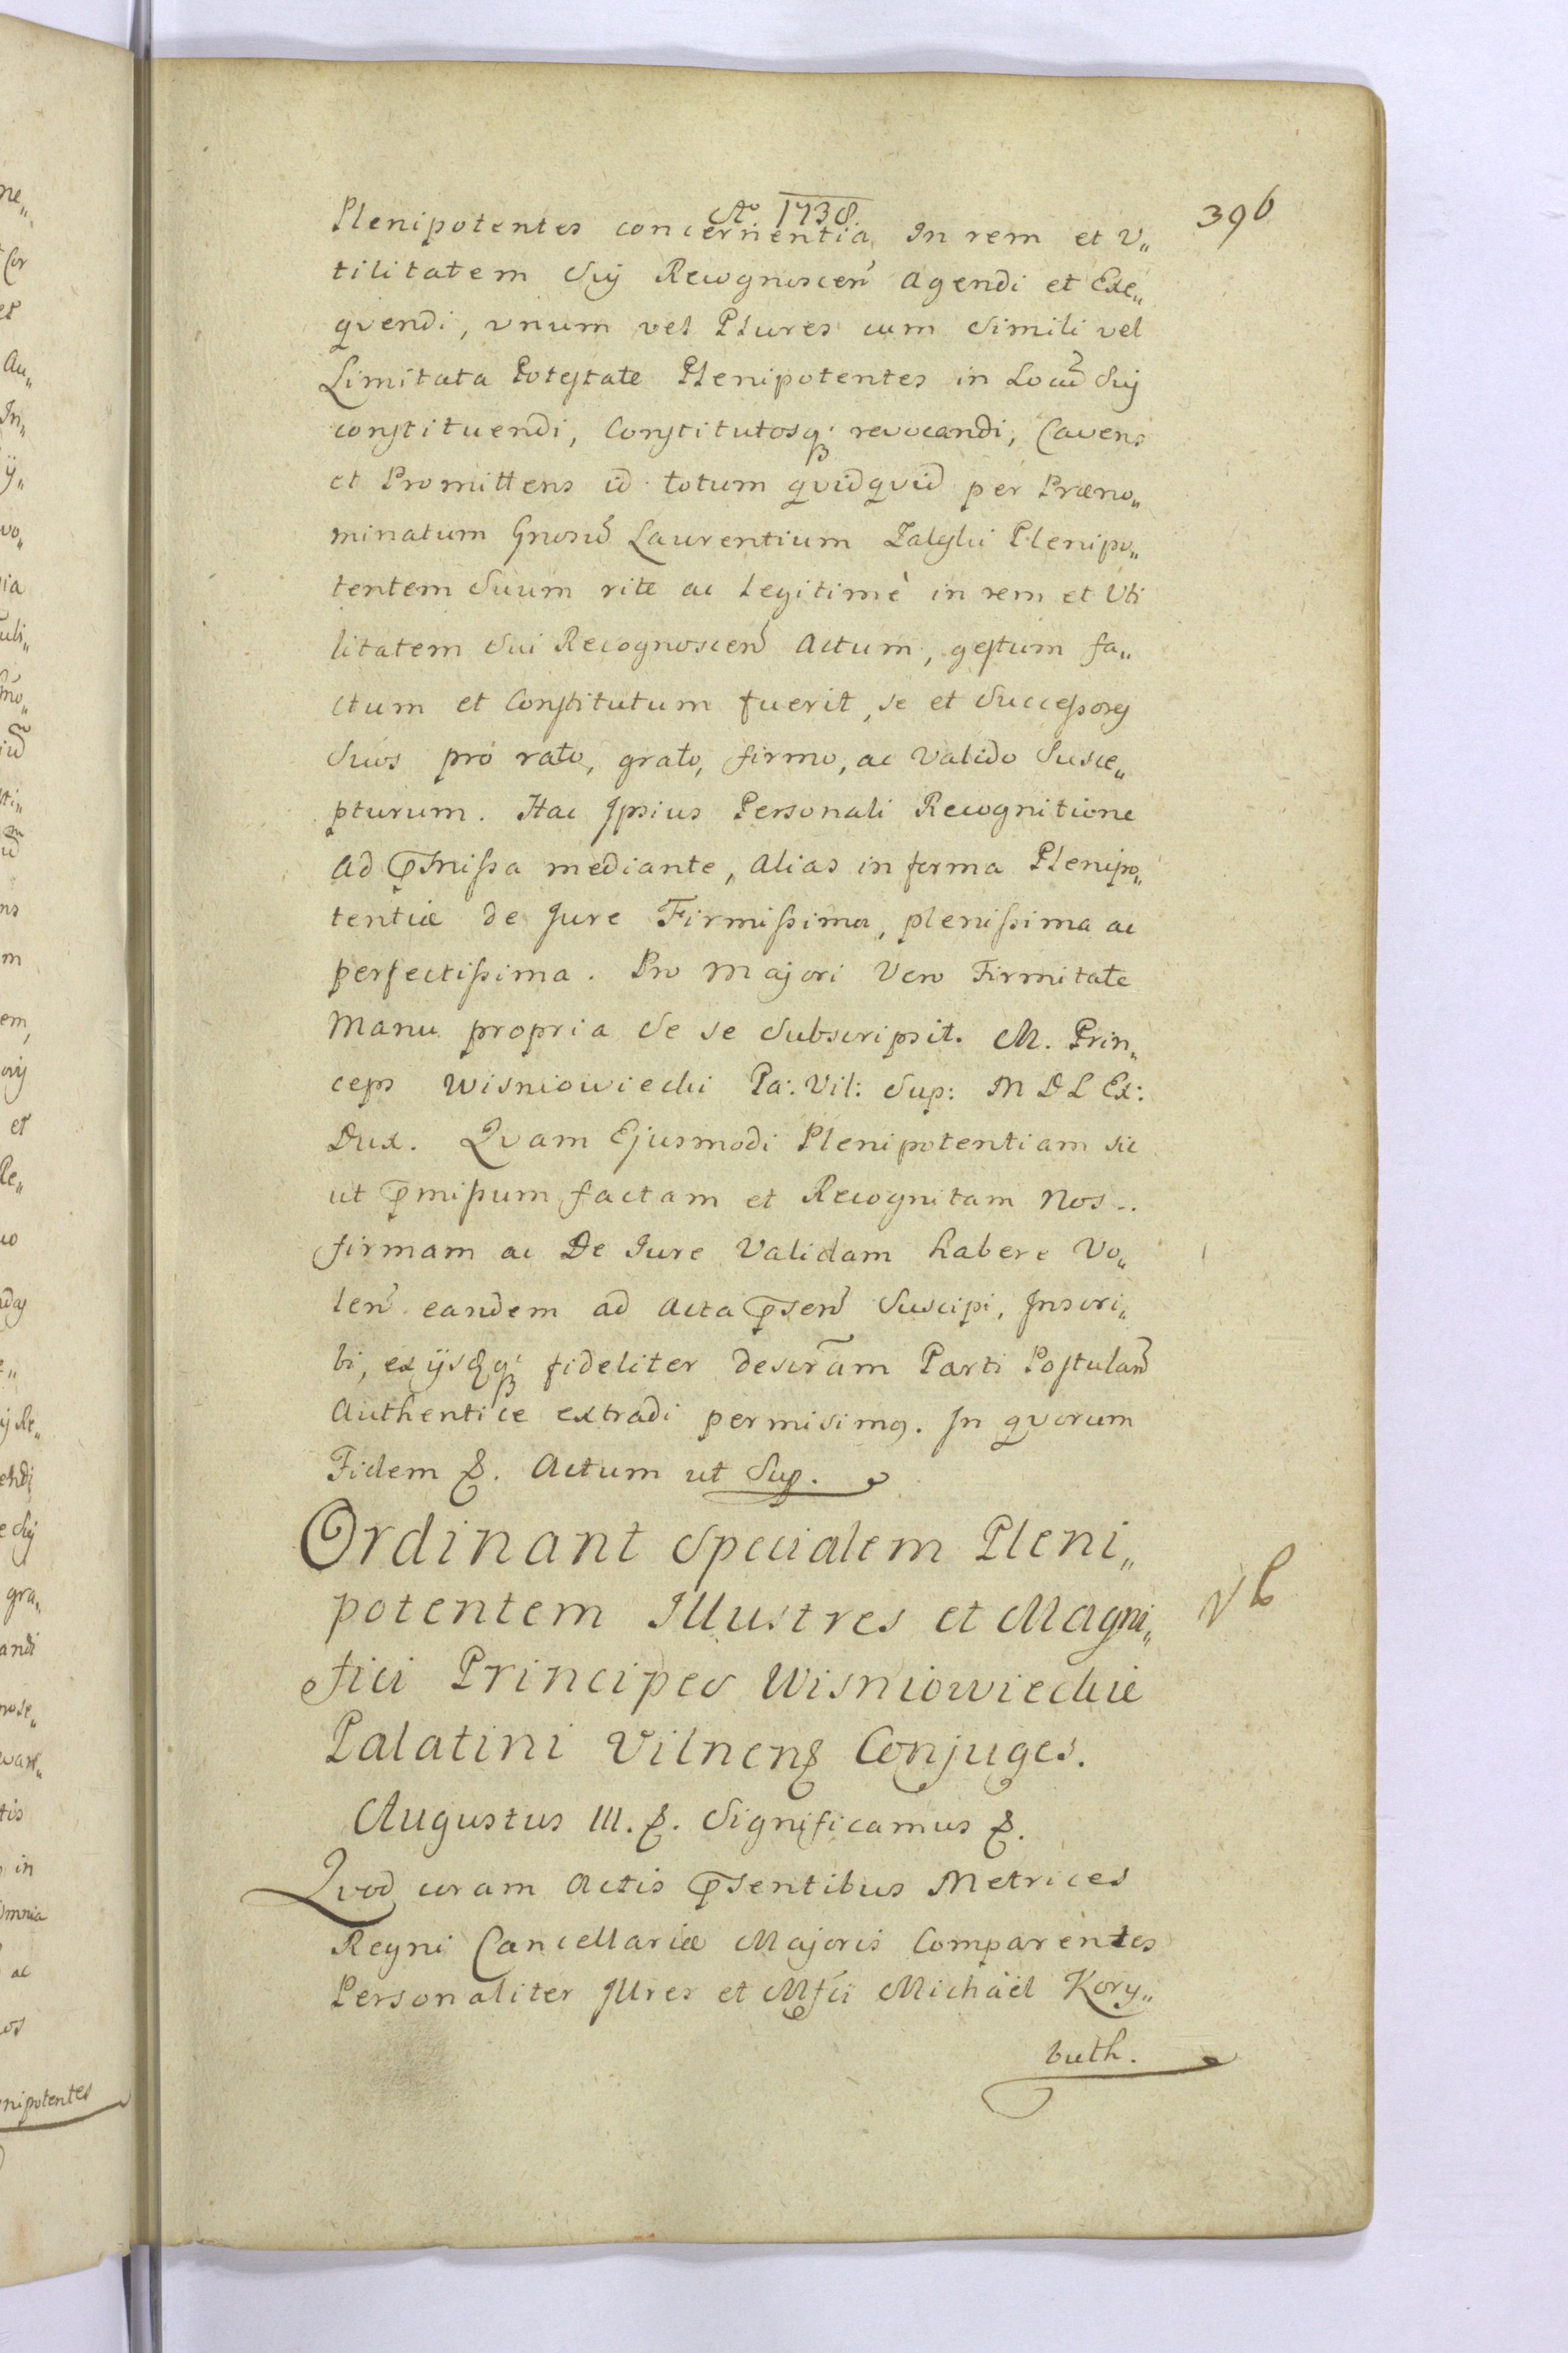 Ao 1738.
396
Plenipotentes concernentia, In rem et V„
tilitatem Sui Recognoscen̄ agendi et Exe„
qvendi, vnum vel Plures cum Simili vel
Limitata Potestate Plenipotentes in Locum̄ Sui
constituendi, Constitutosq; revocandi, Cavens
et Promittens id totum qvidqvid per Præno„
minatum Gnosum̄ Laurentium Plenipo„
tentem Suum rite ac Legitimè in rem et Uti
litatem Sui Recognoscen̄ Actum, gestum fa„
ctum et Constitutum fuerit, se et Successores
Suos pro rato, grato, firmo, ac Valido Susce„
pturum. Hac Ipsius Personali Recognitione
ad p̄missa mediante, Alias in forma Plenipo„
tentiæ de Jure Firmissima, plenissima ac
perfectissima. Pro Majori Vero Firmitate
Manu propria Se se Subscripsit. M. Prin„
ceps Wisniowiecki Pa: Vil: Sup: M D L Ex:
Dux. Qvam Ejusmodi Plenipotentiam sic
ut p̄missum factam et Recognitam Nos..
firmam ac De Jure Validam habere Vo„
len̄ eandem ad Acta p̄sen̄ Suscipi, Inscri„
bi, ex ijsq; fideliter descr̄am Parti Postulan̄
Authentice extradi permisimus. In qvorum
Fidem &. Actum ut Sup.
Ordinant Specialem Pleni„
potentem Illustres et Magni„
fici Principes Wisniowieckie
Palatini Vilnens Conjuges.
Augustus III. &. Significamus &.
Qvod coram Actis p̄sentibus Metrices
Regni Cancellariæ Majoris Comparentes
Personaliter Illres et Mfci Michaël Kory„
buth.